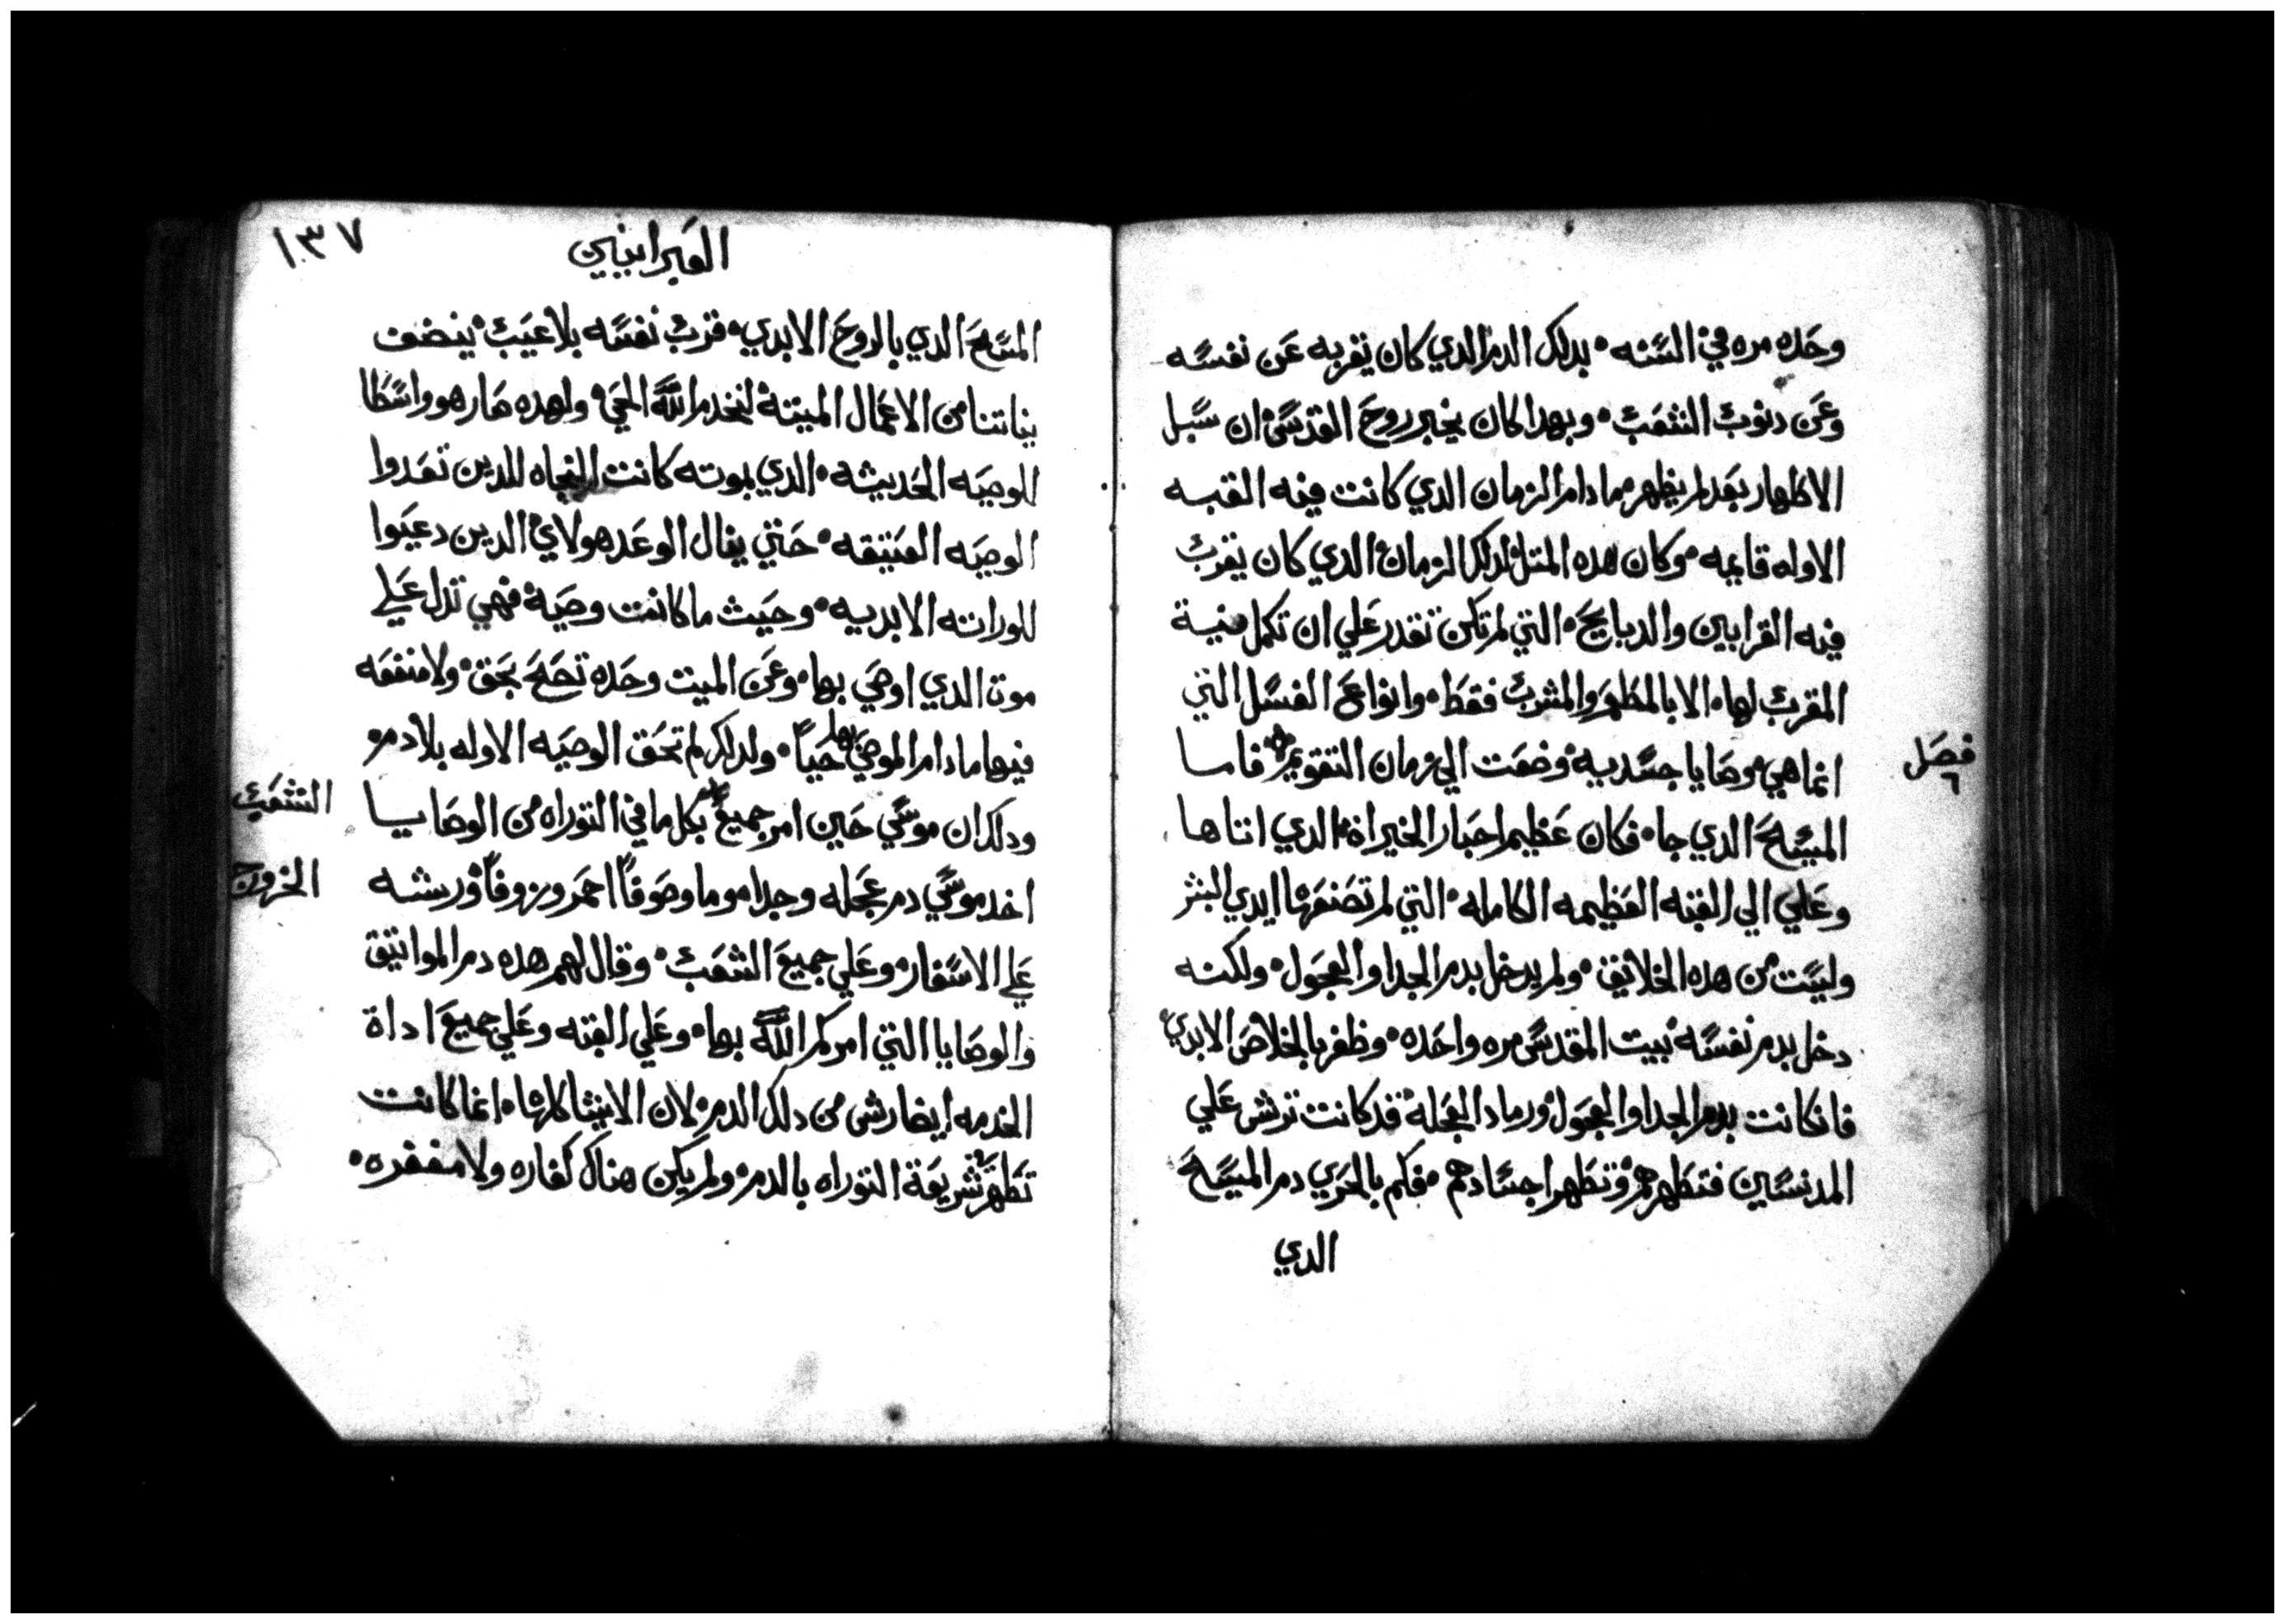 وحده مره في السنه بدلك الدم الدي كان يقربه عن نفسه
وعن دنوب الشعب وبهدا كان يخبر روح القدس ان سبل
الاطهار بعد لم يظهر مما دام الزمان الدي كانت فيه القبه
الاوله قايمه وكان هده المتل لدلك الزمان الدي كان يقرب
فيه القرابين والدبايح التي لم تكن تقدر علي ان تكمل نية
المقرب لها الا بالمطهر والمشرب فقط وانواع الغسل التي
انما هي وصايا جسديه وضعت الي زمان التقويم فاما
فصل ٦
المسيح الدي جا فكان عظيم احبار الخيراة الدي اتاها
وعلي الي القبه العظيمه الكامله التي لم تصنعها ايدي البشر
وليست من هده الخلايق ولم يدخل بدم الجدا والعجول ولكنه
دخل بدم نفسه بيت المقدس مره واحده وظفر بالخلاص الابدي
فانكانت بدم الجدا والعجول ورماد العجلة قد كانت ترش علي
المدنسين فتطهرهم وتطهر اجسادهم فكم بالحري دم المسيح
الدي
١٣٧
العبرانيين
المسيح الدي بالروح الابدي قرب نفسه بلا عيب ينضف
نياتنا من الاعمال الميتة لنخدم الله الحي ولهده صار هو واسطا
للوصيه الحديثه الدي بموته كانت النجاه للدين تعدوا
الوصيه العتيقه حتي ينال الوعد هولاي الدين دعيوا
للوراته الابديه وحيث ما كانت وصية فهي تدل علي
موت الدي اوصي بها وعن الميت وحده تصح بحق ولا منفعه
فيها ما دام الموصي بها حيا ولدلك لم تحق الوصيه الاوله بلا دم
ودلك ان موسي حين امر جميع بكل ما في التوراه من الوصايا
الشعب
اخد موسي دم عجله وجدا وما وصوفا احمر وزوفا ورشه
الخروج
علي الاسفار وعلي جميع الشعب وقال لهم هده دم المواتيق
والوصايا التي امركم الله بها وعلي القبه وعلي جميع اداة
الخدمه ايضا رش من دلك الدم لان الاشيا كلها انما كانت
تطهر شريعة التوراه بالدم ولم يكن هناك كفاره ولا مغفره